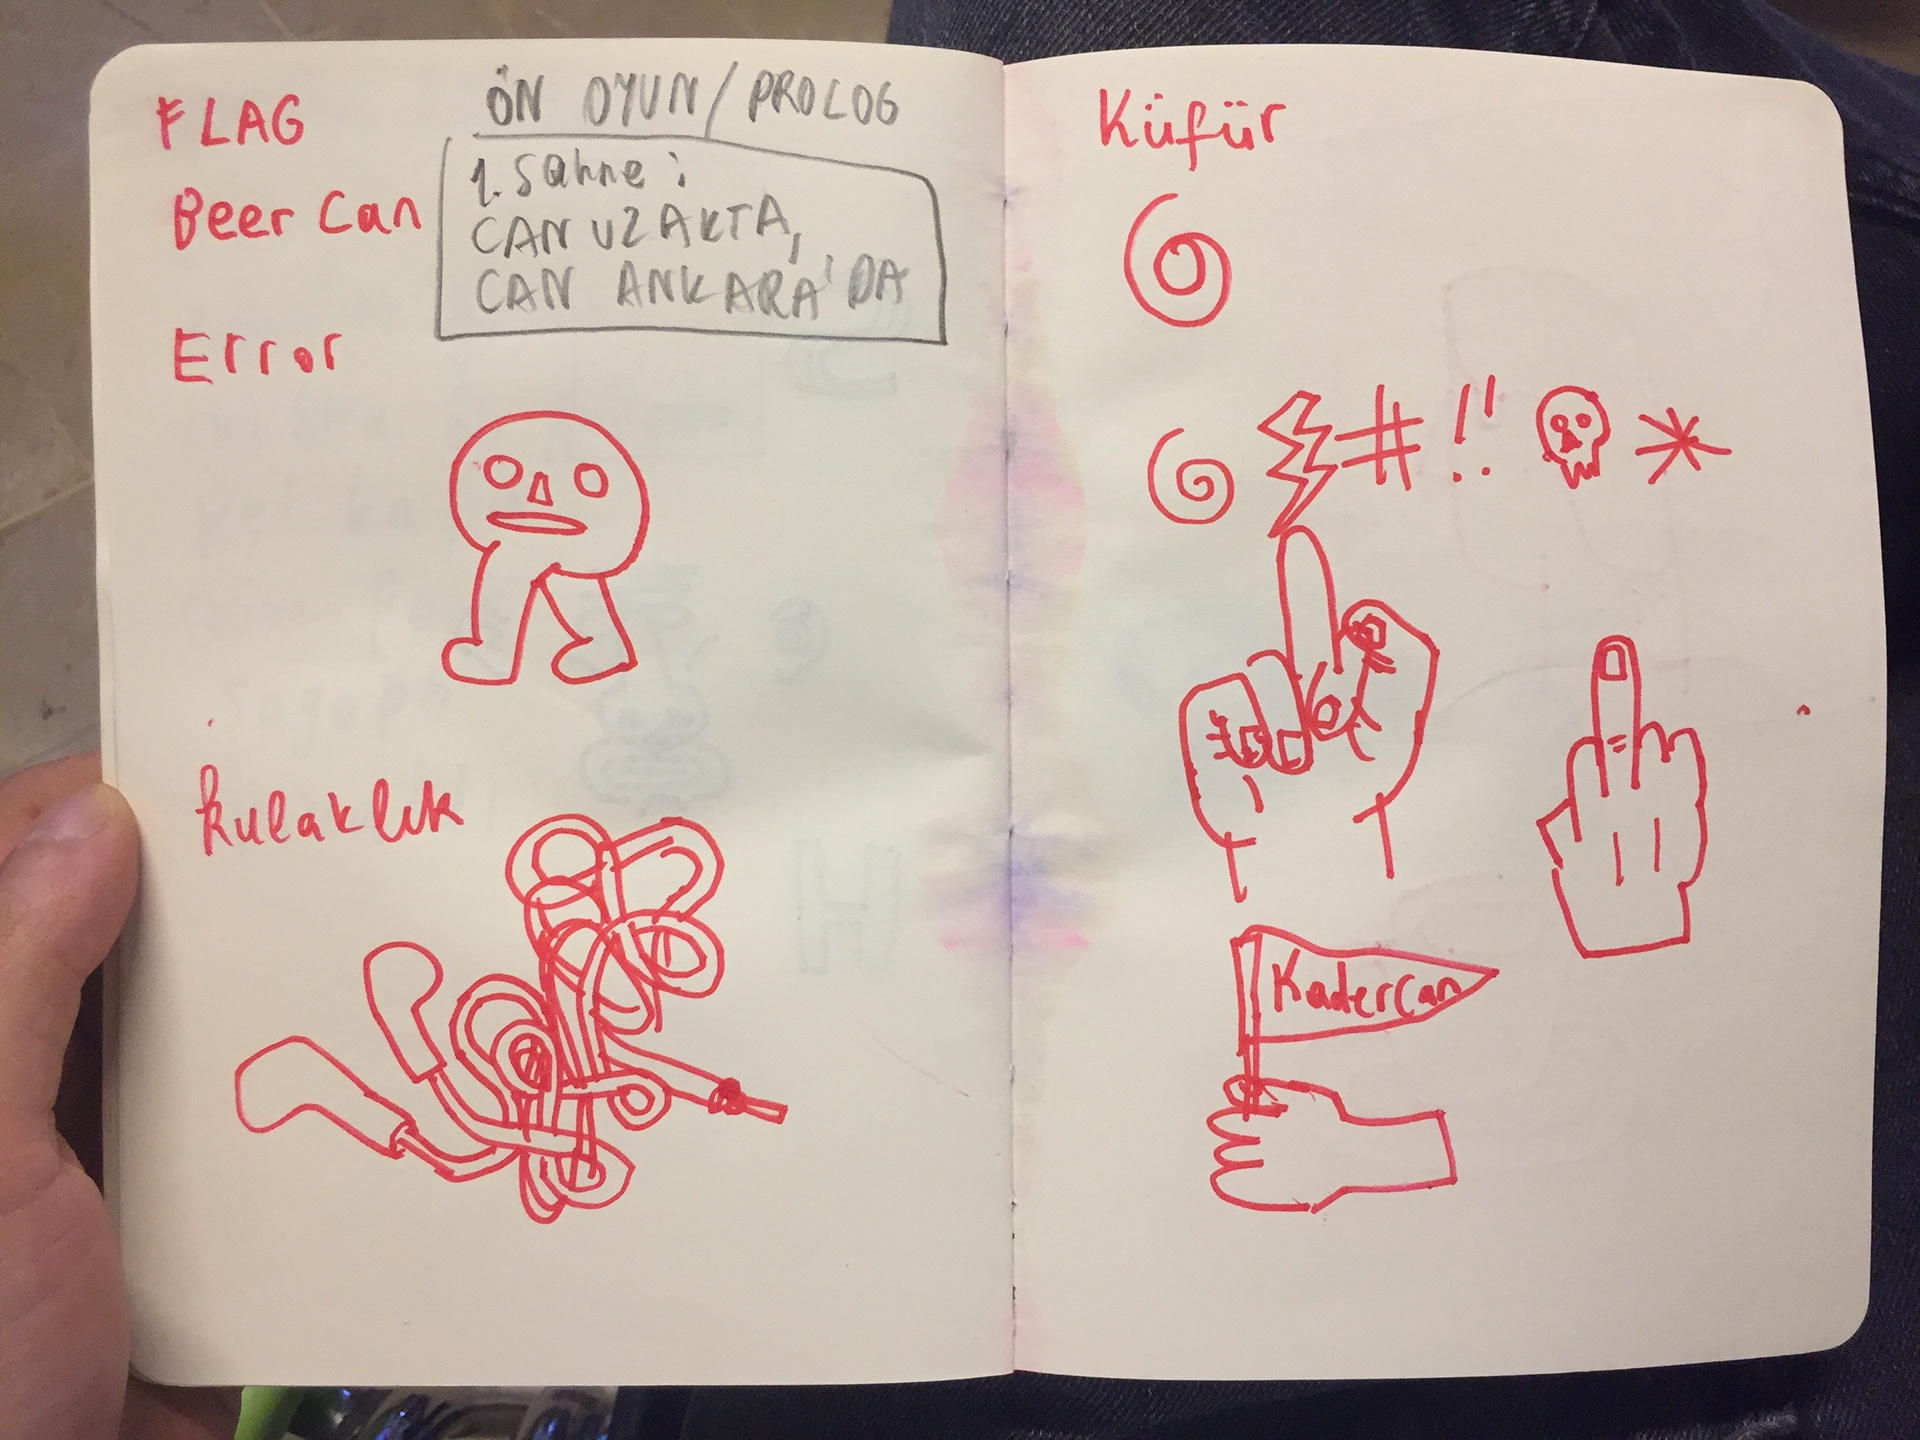 FLAG
Beer Can
Error
ÖN OYUN / PROLOG
1. Sahne :
CAN UZAKTA,
CAN ANKARA'DA
kulaklık
Küfür
# !! *
KaderCan